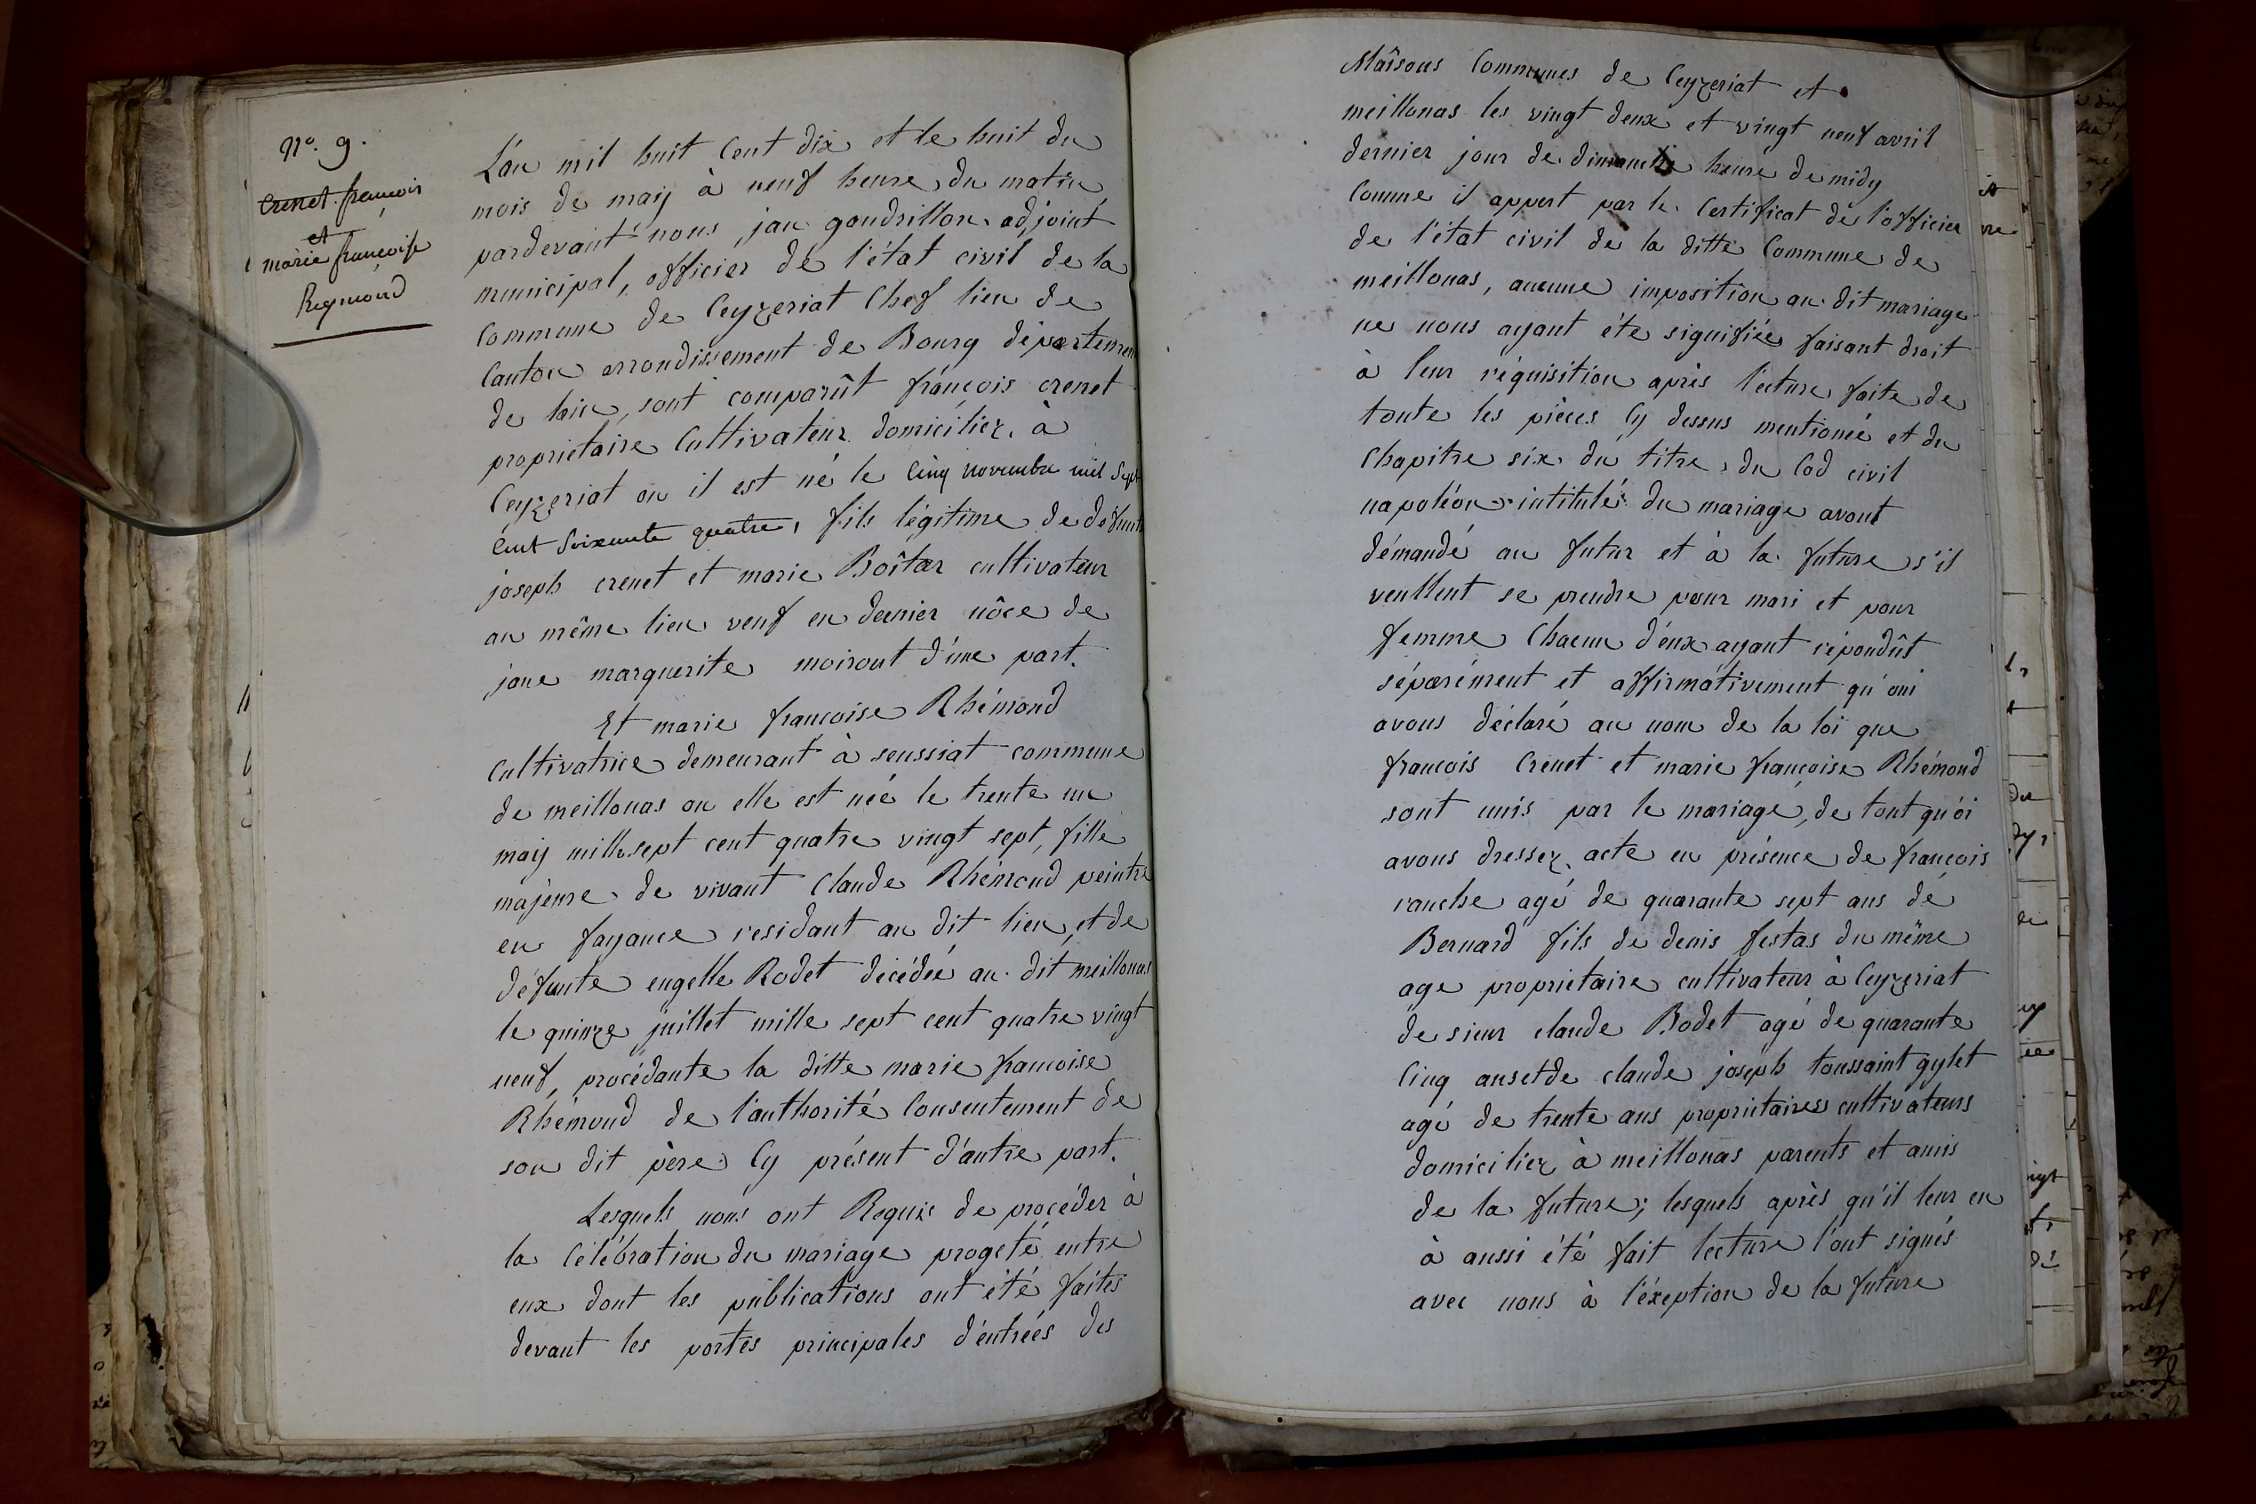 N.o 9.
Crenet françois
et
marie françoise
Reymond
L'an mil huit Cent dix et le huit du
mois de may à neuf heure du matin
pardevant nous, jan gondrillon adjoint
municipal, officier de l'état civil de la
Commune de Ceyzeriat Chef lieu de
Canton arrondissement de Bourg département
de lain, sont comparût françois crenet
propriétaire Cultivateur domicilier à
Ceyzeriat ou il est né le Cinq novembre mil Sept
Cent Soixante quatre, fils légitime de defunt
joseph crenet et marie Boîtar cultivateur
au même lieu veuf en dernier nôce de
jane marguerite moirout d'une part.
Et marie françoise Rhémond
Cultivatrice demeurant à senssiat commune
de meillonas ou elle est née le trente un
may mille sept cent quatre vingt sept, fille
majeure de vivant Claude Rhémond peintre
en fayance residant au dit lieu, et de
défunte engelle Rodet décédée au dit meillonas
le quinze juillet mille sept cent quatre vingt
neuf, procédante la ditte marie francoise
Rhémond de l'authorité Consentement de
son dit père Cy présent d'autre part.
Lesquels nous ont Requis de procéder à
la Célébration du mariage progeté entre
eux dont les publications ont été faites
devant les portes principales d'éntrées des
Maîsons Communes de Ceyzeriat et
meillonas les vingt deux et vingt neuf avril
dernier jour de dimanche heure de midy
Comme il appert par le Certificat de l'officier
de l'état civil de la ditte Commune de
meillonas, aucune imposition au dit mariage
ne nous ayant été signifiée faisant droit
à leur réquisition après lecture faite de
toute les pièces Cy dessus mentionée et du
Chapitre six du titre du Cod civil
napoléon intitulé du mariage avont
démandé au futur et à la future s'il
veullent se prendre pour mari et pour
femme Chacun d'eux ayant répondût
séparément et affirmativement qu'oui
avous déclaré au nom de la loi que
françois Crenet et marie françoise Rhémond
sont unis par le mariage, de tout qu'oi
avons dressez acte en présence de françois
ranche agé de quarante sept ans de
Bernard fils de denis festas du même
age propriétaire cultivateur à Ceyzeriat
de sieur claude Rodet agé de quarante
Cinq ans et de claude joseph toussaint gylet
agé de trente ans propriétaires cultivateurs
domicilier à meillonas parents et amis
de la future; lesquels après qu'il leur en
à aussi été fait lecture l'ont signés
avec nous à l'éxeption de la future